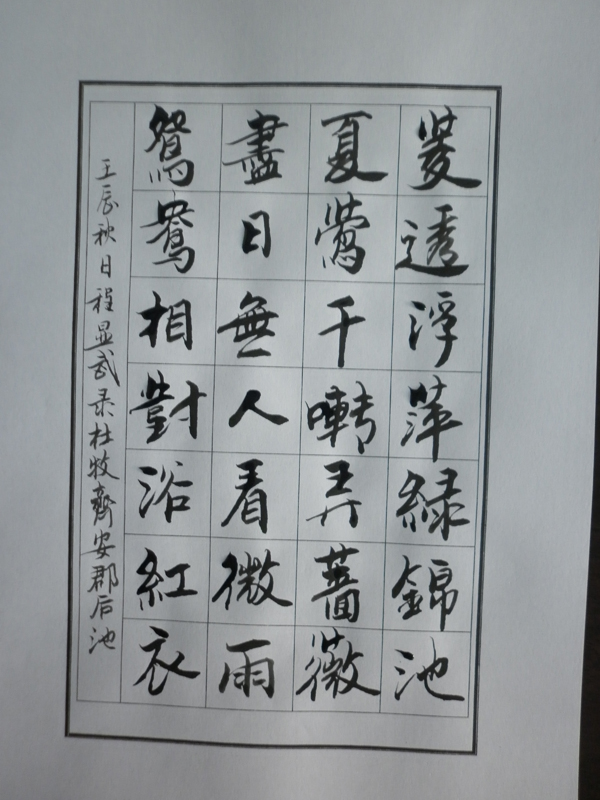 菱透浮萍緑錦池
夏鶯千囀弄薔薇
盡日無人看微雨
鴛鴦相對浴紅衣
壬辰秋日程显武录杜牧齊安郡后池